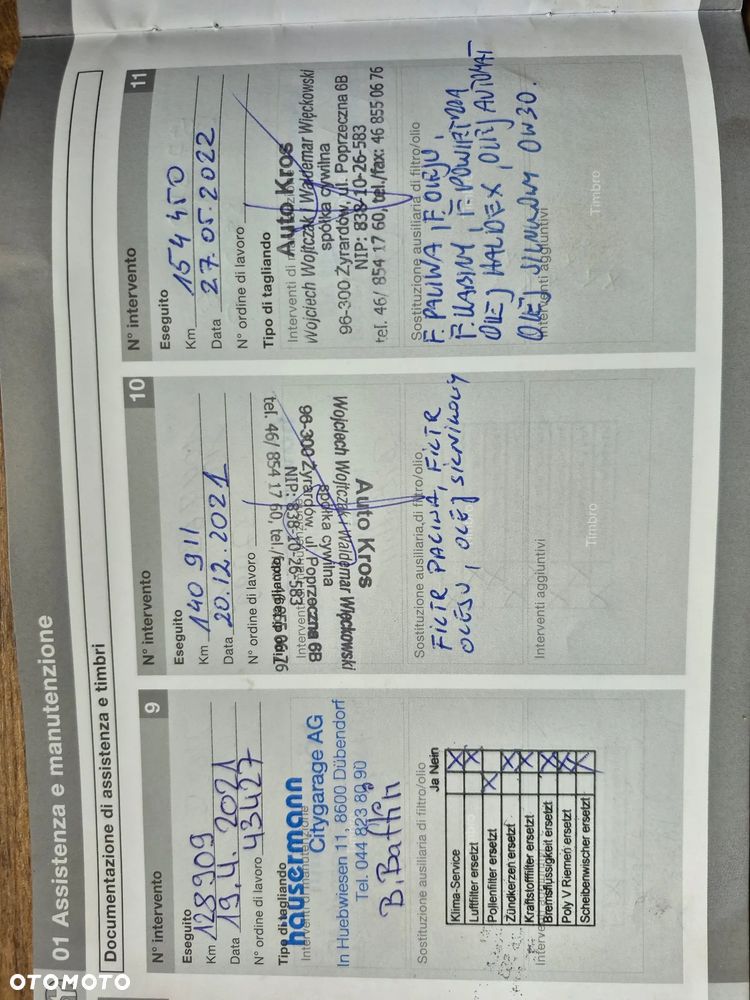 01 Assistenza e manutenzione
Documentazione di assistenza e timbri
N° intervento 9
Eseguito
Km 128909
Data 19.4.2021
N° ordine di lavoro 43427
Tipo di tagliando
Interventi di manutenzione
hausermann
Citygarage AG
In Huebwiesen 11, 8600 Dübendorf
Tel. 044 823 80 90
Sostituzione ausiliaria di filtro/olio
Ja Nein
Klima-Service X
Luftfilter ersetzt X
Pollenfilter ersetzt X
Zündkerzen ersetzt X
Kraftstofffilter ersetzt X
Bremsflüssigkeit ersetzt X
Poly V Riemen ersetzt X
Scheibenwischer ersetzt X
N° intervento 10
Eseguito
Km 140 911
Data 20.12.2021
N° ordine di lavoro
Auto Kros
Wojciech Wojtczak i Waldemar Więckowski
spółka cywilna
96-300 Żyrardów, ul. Poprzeczna 6B
NIP: 838-10-26-583
tel. 46/ 854 17 60, tel./fax: 46 855 06 76
Sostituzione ausiliaria di filtro/olio
FILTR PALIWA, FILTR
OLEJU, OLEJ SILNIKOWY
Interventi aggiuntivi
Timbro
N° intervento 11
Eseguito
Km 154 450
Data 27.05.2022
N° ordine di lavoro
Tipo di tagliando
Interventi di
Auto Kros
Wojciech Wojtczak i Waldemar Więckowski
spółka cywilna
96-300 Żyrardów, ul. Poprzeczna 6B
NIP: 838-10-26-583
tel. 46/ 854 17 60, tel./fax: 46 855 06 76
Sostituzione ausiliaria di filtro/olio
F. PALIWA, F. OLEJU,
F. KABINY, F. POWIETRZA
OLEJ HALDEX, OLEJ AUTOMAT
OLEJ SILNIKOWY 0W30.
Interventi aggiuntivi
Timbro
OTOMOTO